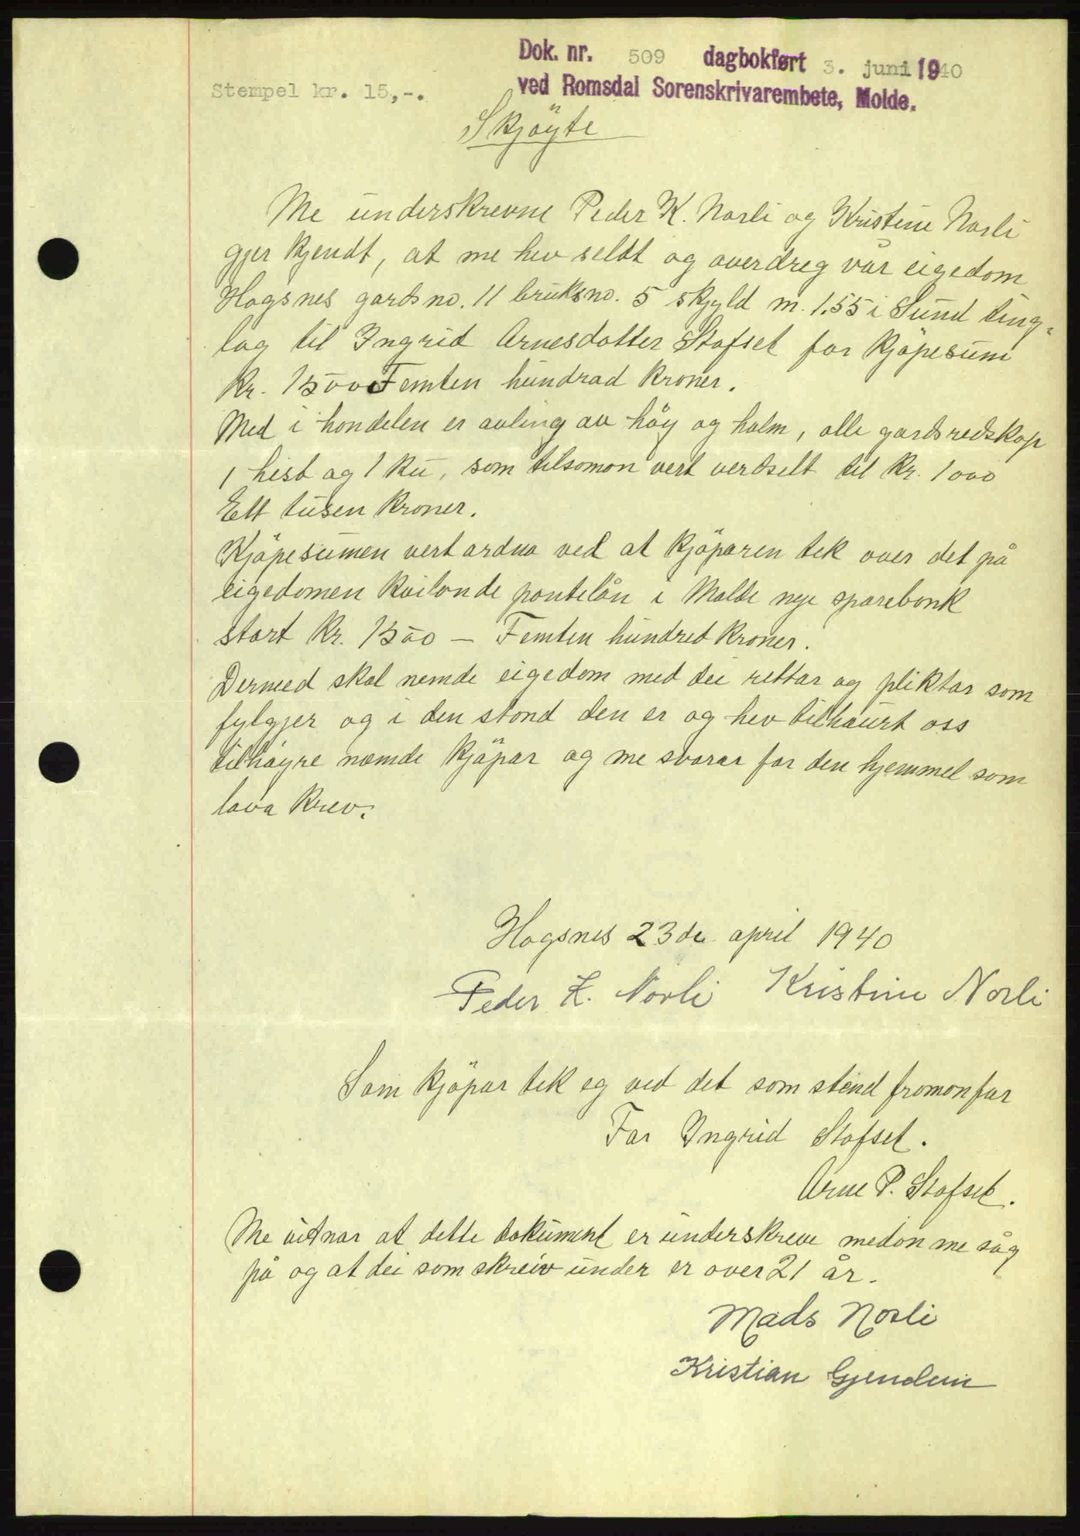 Dok. nr. 509 dagbokført 3. juni 1940
Stempel kr. 15,-.
ved Romsdal Sorenskrivarembete, Molde.
Skjøyte
Me underskrevne Peder K. Norli og Kristine Norli
gjer kjendt, at me hev seldt og overdreg vår eigedom
Hogsnes gards no. 11 bruksno. 5 skyld m. 1.55 i Sund ting-
lag til Ingrid Arnesdotter Stafset for kjöpesum
Kr. 1500 Femten hundrad kroner.
Med i hondelen er avling av höy og halm, alle gardsredskap
1 hest og 1 ku, som tilsamon vert verdselt til Kr. 1000
Ett tusen kroner.
Kjöpesumen vert ordna ved at kjöparen tek over det på
eigedomen kvilande pantelån i Molde nye sparebank
stort kr. 1500 – Femten hundred kroner.
Dermed skal nemde eigedom med dei rettar og pliktar som
fylgjer og i den stond den er og hev tilhöurt oss
tilhöyre næmde kjöpar og me svarar for den hjemmel som
lova krev.
Hogsnes 23de april 1940
Peder K. Norli Kristine Norli
Som kjöpar tek eg ved det som stend fromonfor
For Ingrid Stafset.
Arne P. Stafset.
Me vitnar at dette dokument er underskreve medan me såg
på og at dei som skreiv under er over 21 år.
Mads Norli
Kristian Gjendem